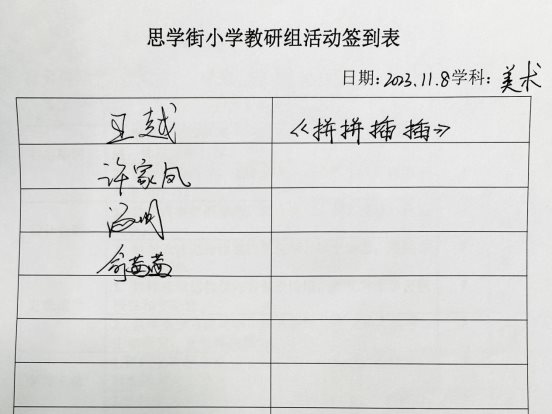 思学街小学教研组活动签到表
日期：2023.11.8 学科：美术
王越 《拼拼插插》
许家凤
俞茜茜